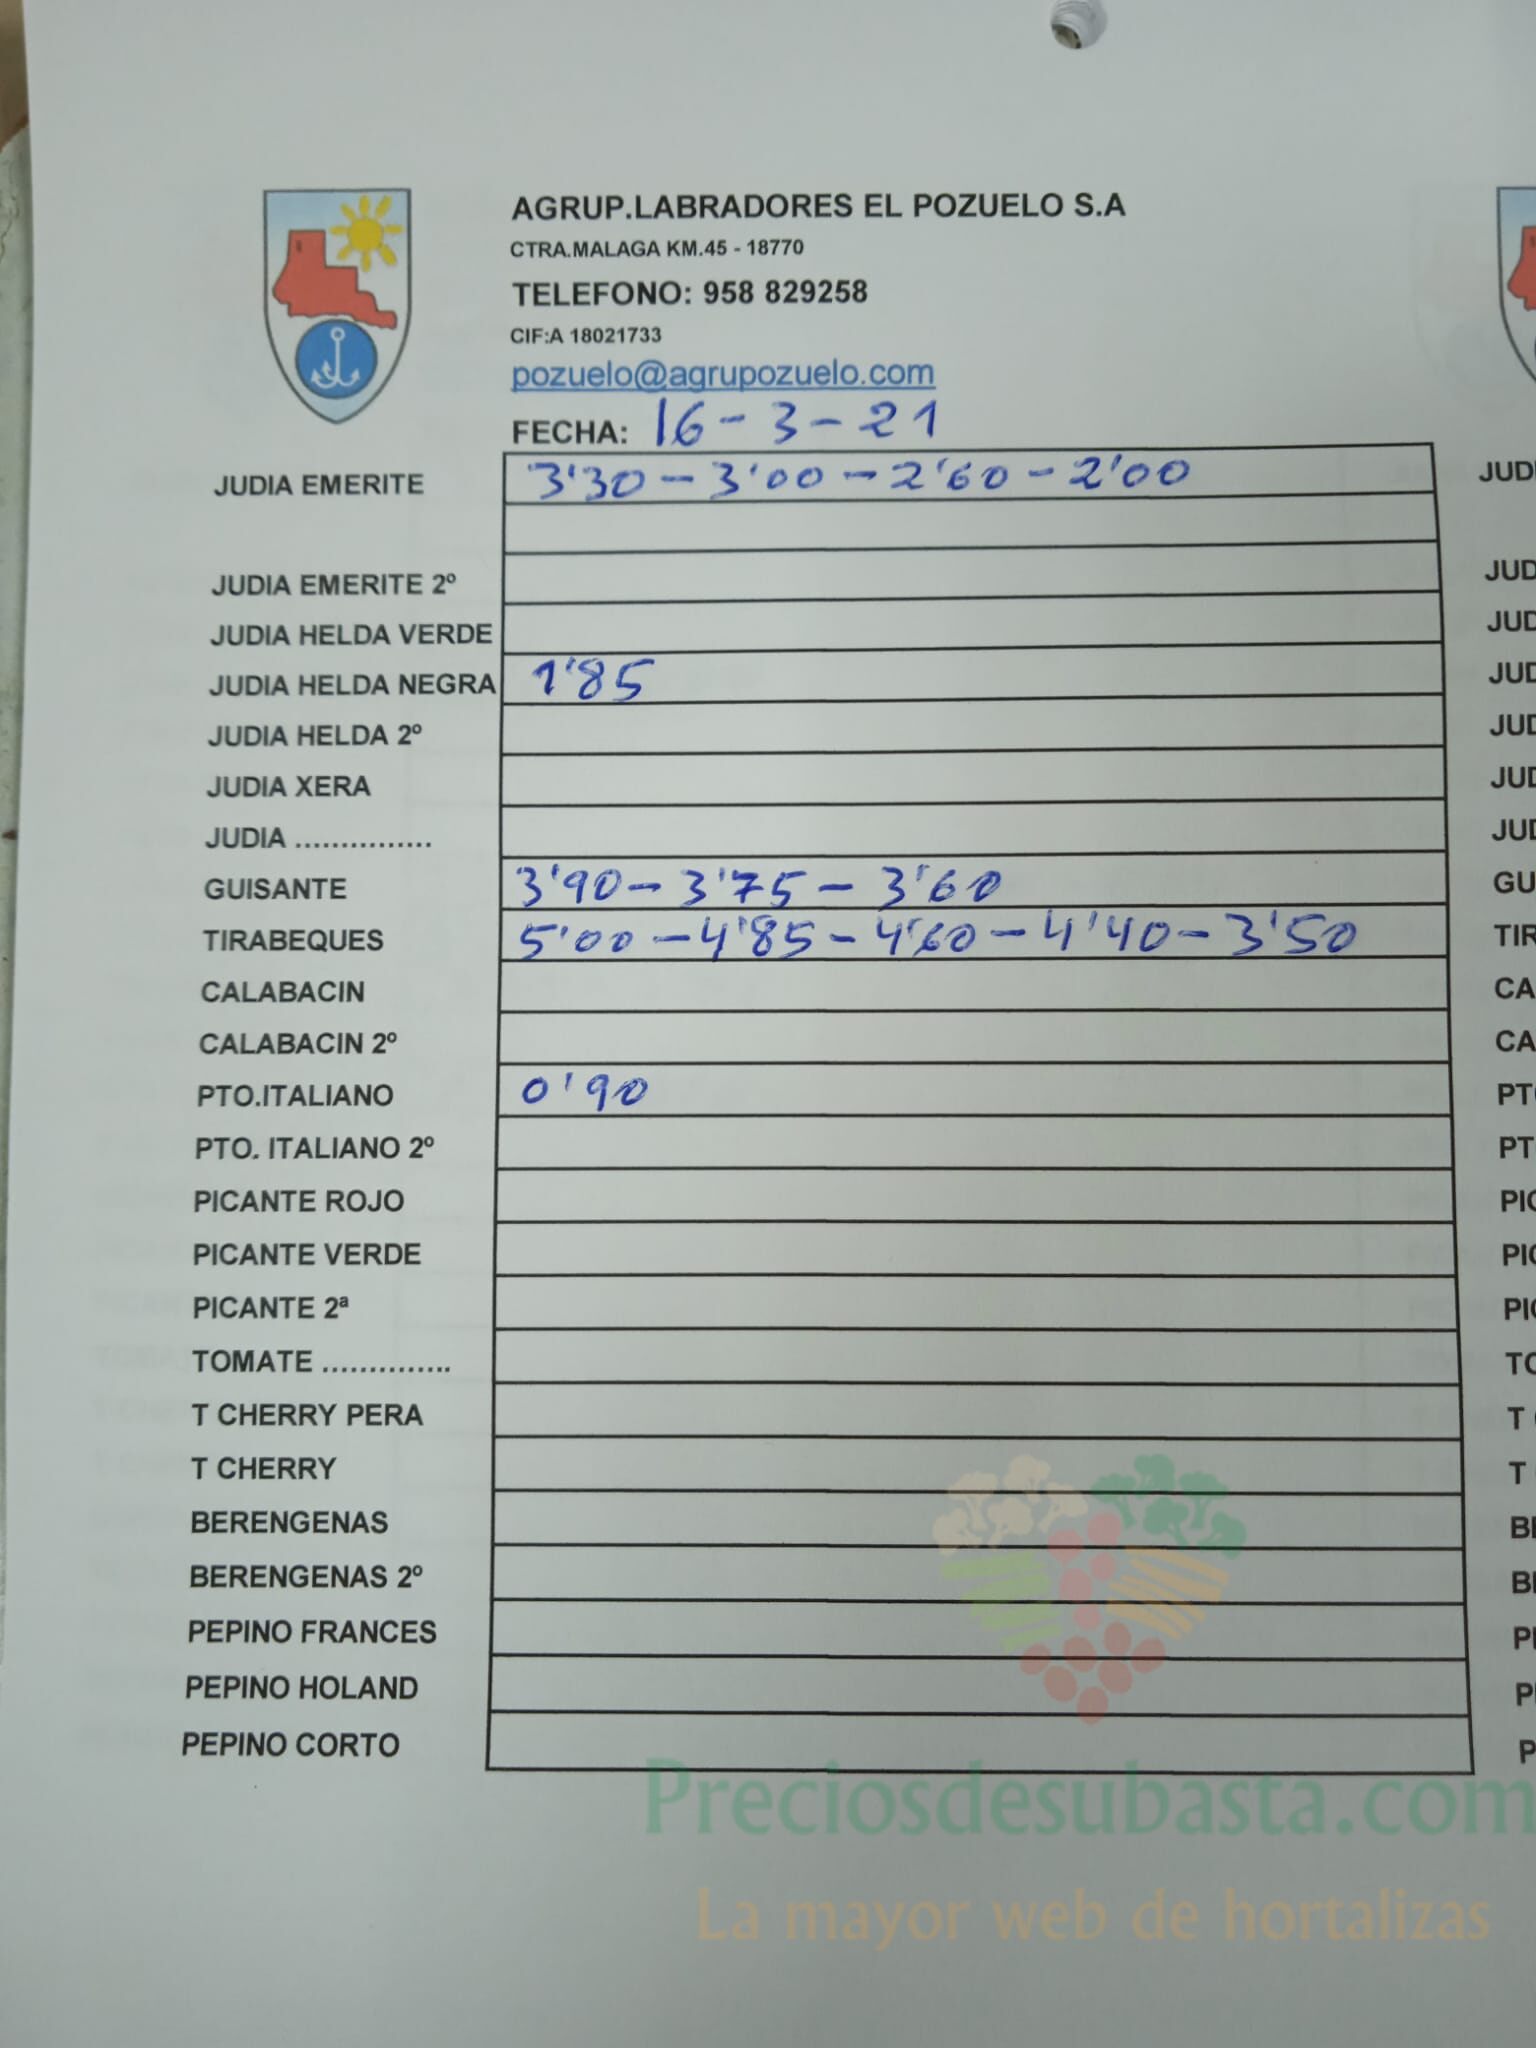 AGRUP.LABRADORES EL POZUELO S.A
CTRA.MALAGA KM.45 - 18770
TELEFONO: 958 829258
CIF:A 18021733
pozuelo@agrupozuelo.com
FECHA: 16-3-21
JUDIA EMERITE 3'30 - 3'00 - 2'60 - 2'00 JUDI
JUDIA EMERITE 2º JUD
JUDIA HELDA VERDE JUD
JUDIA HELDA NEGRA 1'85 JUD
JUDIA HELDA 2º JUD
JUDIA XERA JUD
JUDIA ............... JUD
GUISANTE 3'90 - 3'75 - 3'60 GU
TIRABEQUES 5'00 - 4'85 - 4'60 - 4'40 - 3'50 TIR
CALABACIN CA
CALABACIN 2º CA
PTO.ITALIANO 0'90 PT
PTO. ITALIANO 2º PT
PICANTE ROJO PIC
PICANTE VERDE PIC
PICANTE 2ª PIC
TOMATE .............. TO
T CHERRY PERA T
T CHERRY T
BERENGENAS BE
BERENGENAS 2º BE
PEPINO FRANCES PE
PEPINO HOLAND PE
PEPINO CORTO P
Preciosdesubasta.com
La mayor web de hortalizas